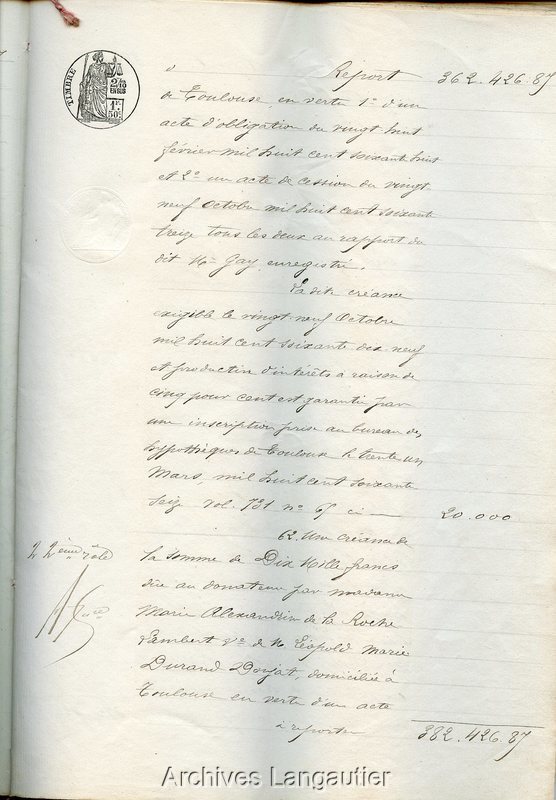 TIMBRE
2/10
EN SUS
1F.
50c.
Report 362.426.87
de Toulouse en vertu 1o d'un
acte d'obligation du vingt huit
février mil huit cent soixante huit
et 2o un acte de cession du vingt
neuf Octobre mil huit cent soixante
treize tous les deux au rapport du
dit Me Gay, enregistré.
La dite créance
exigible le vingt-neuf Octobre
mil huit cent soixante dix neuf
et productive d'intérêts a raison de
cinq pour cent est garantie par
une inscription prise au bureau des
hypothèques de Toulouse le trente un
Mars, mil huit cent soixante
seize vol. 731 no 65 ci — 20.000
62. Une créance de
22ème rôle
la somme de Dix Mille francs
due au donateur par madame
Marie Alexandrine de la Roche
Lambert Ve de M. Léopold Marie
Durand Doujat, domiciliée à
Toulouse en vertu d'un acte
à reporter 382.426.87
Archives Langautier